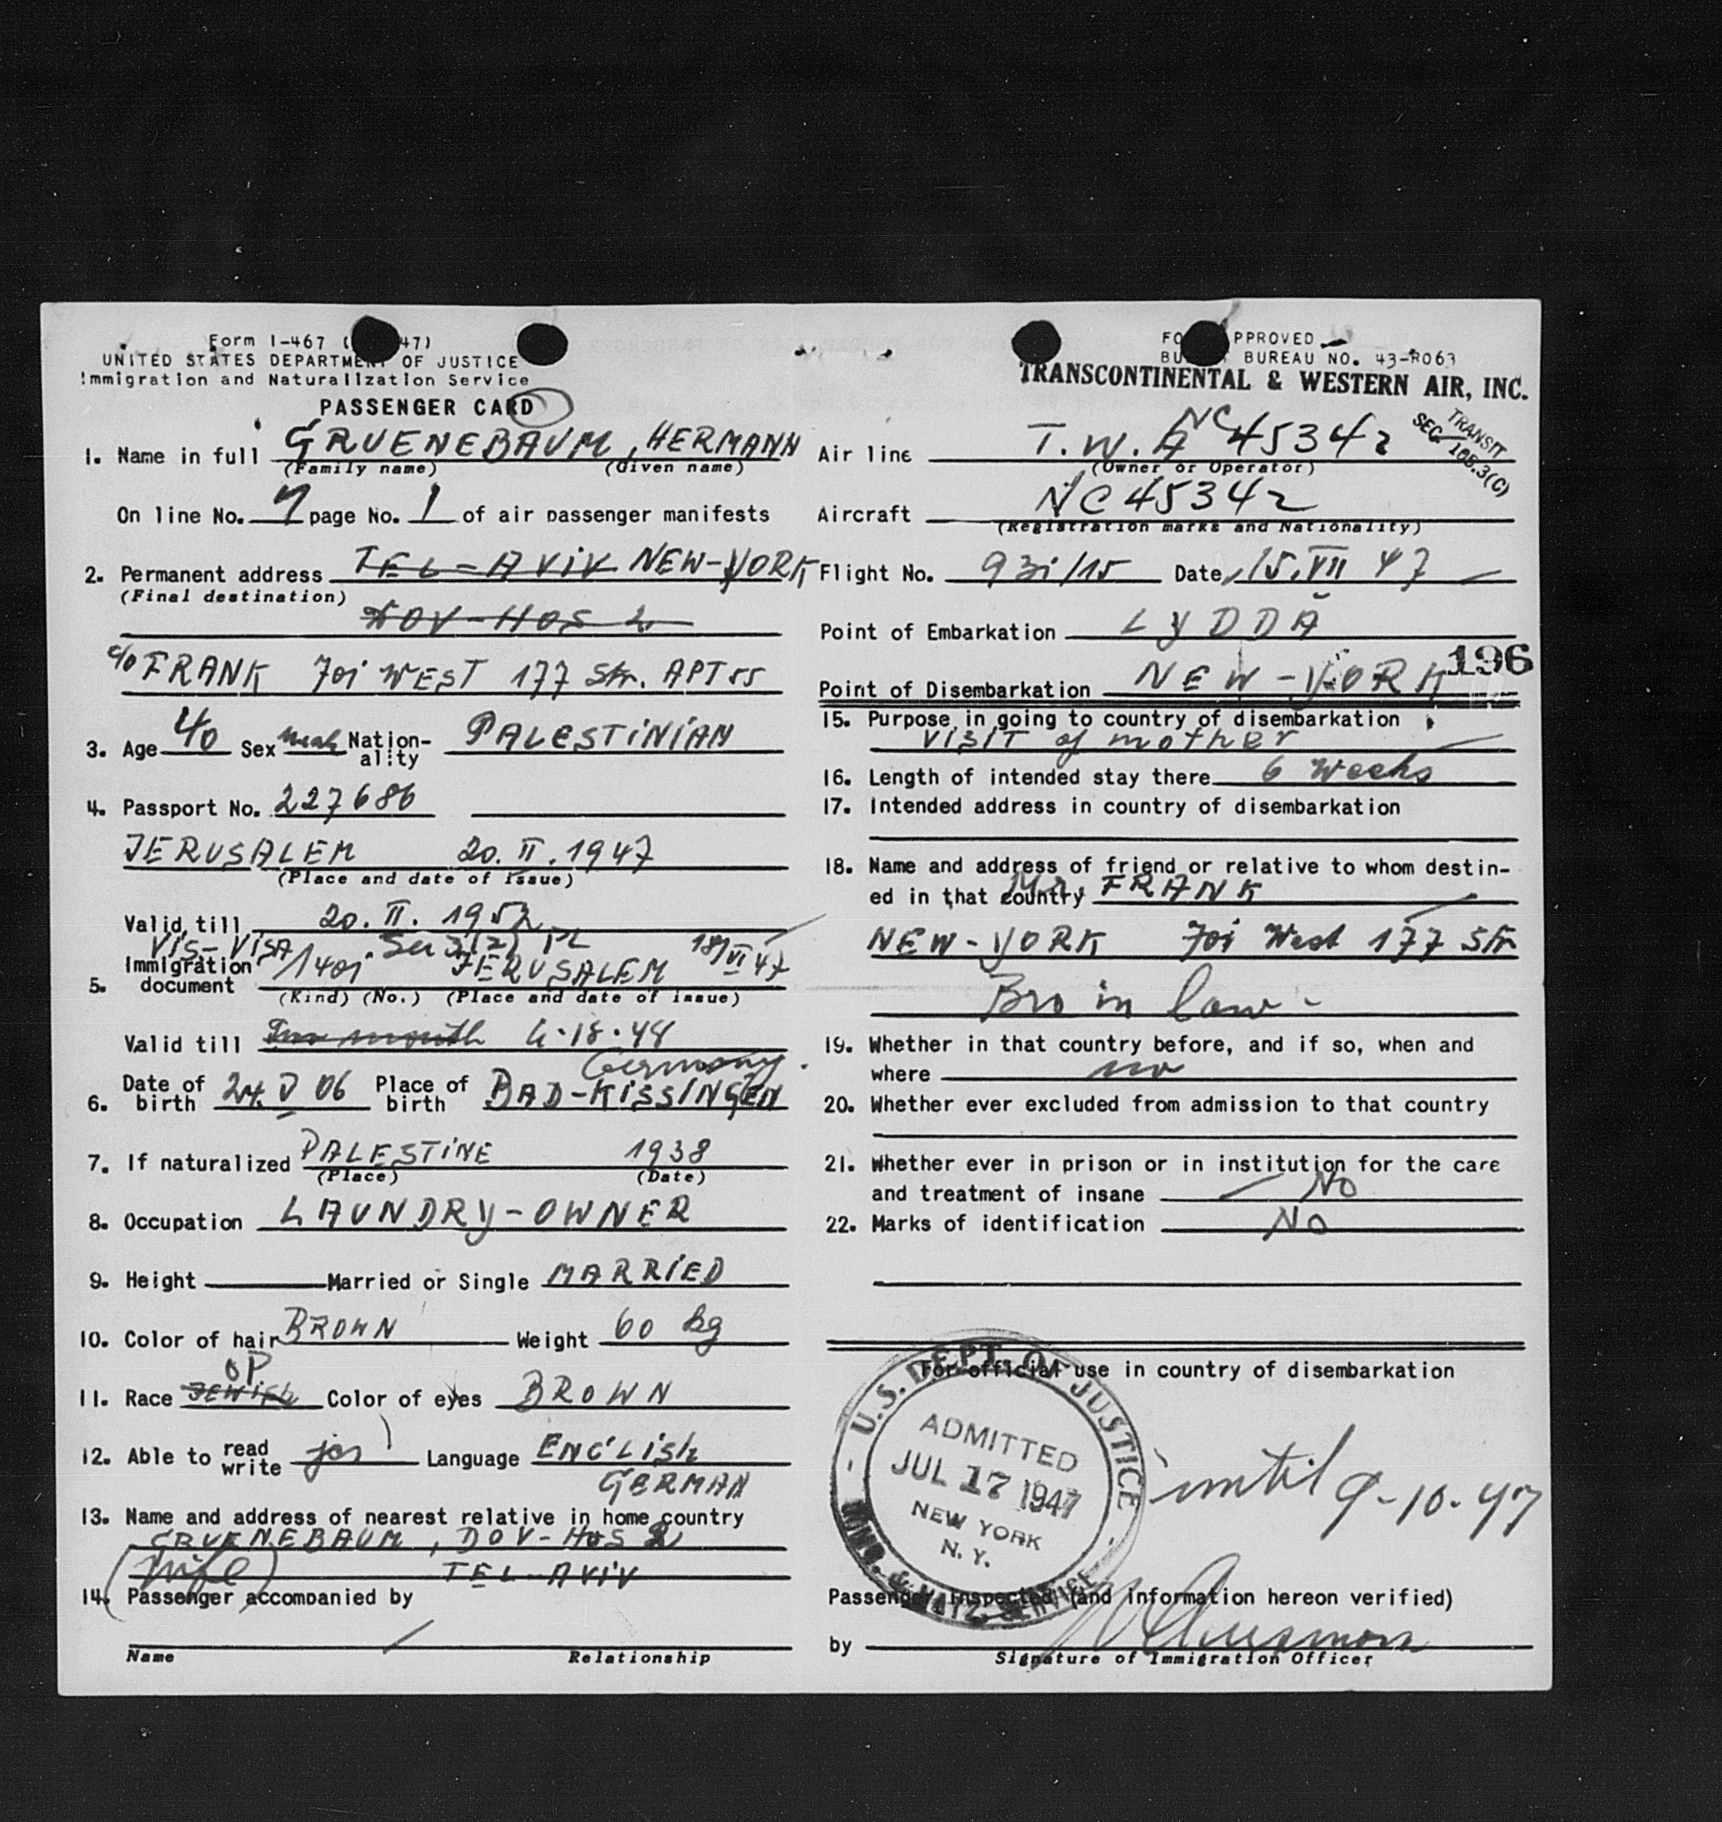 Form I-467 ( 47)
UNITED STATES DEPARTMENT OF JUSTICE
Immigration and Naturalization Service
PASSENGER CARD
1. Name in full GRUENEBAUM, HERMANN
(Family name) (Given name)
On line No. 7 page No. 1 of air passenger manifests
2. Permanent address TEL-AVIV NEW-YORK
(Final destination)
DOV-HOS 2
c/o FRANK 701 WEST 177 Str. APT 55
3. Age 40 Sex male Nation-ality PALESTINIAN
4. Passport No. 227686
JERUSALEM 20. II. 1947
(Place and date of issue)
Valid till 20. II. 1952
VIS-VISA Sec 3(2) PL 18/VI 47
5. Immigration document 1401 JERUSALEM
(Kind) (No.) (Place and date of issue)
Valid till month 6-18-48
Germany
6. Date of birth 24. V 06 Place of birth BAD-KISSINGEN
7. If naturalized PALESTINE 1938
(Place) (Date)
8. Occupation LAUNDRY-OWNER
9. Height Married or Single MARRIED
10. Color of hair BROWN Weight 60 kg
OP
11. Race JEWish Color of eyes BROWN
12. Able to read write yes Language ENGLISh
GERMAN
13. Name and address of nearest relative in home country
GRUENEBAUM, DOV-HOS 2
(wife) TEL-AVIV
14. Passenger accompanied by
Name Relationship
FO PPROVED
BU BUREAU NO. 43-R063
TRANSCONTINENTAL & WESTERN AIR, INC.
TRANSIT
SEC. 165.3(C)
Air line T.W.A NC 45342
(Owner or Operator)
Aircraft NC 45342
(Registration marks and Nationality)
Flight No. 931/15 Date 15. VII 47
Point of Embarkation LYDDA
196
Point of Disembarkation NEW-YORK
15. Purpose in going to country of disembarkation
VISIT of mother
16. Length of intended stay there 6 Weeks
17. Intended address in country of disembarkation
18. Name and address of friend or relative to whom destin-
ed in that country Mr. FRANK
NEW-YORK 701 West 177 Str
Bro in law -
19. Whether in that country before, and if so, when and
where no
20. Whether ever excluded from admission to that country
21. Whether ever in prison or in institution for the care
and treatment of insane No
22. Marks of identification No
For official use in country of disembarkation
U.S. DEPT. OF JUSTICE
ADMITTED
JUL 17 1947
NEW YORK
N. Y.
IMM. & NATZ. SERVICE
until 9-10-47
Passenger inspected (and information hereon verified)
by
Signature of Immigration Officer